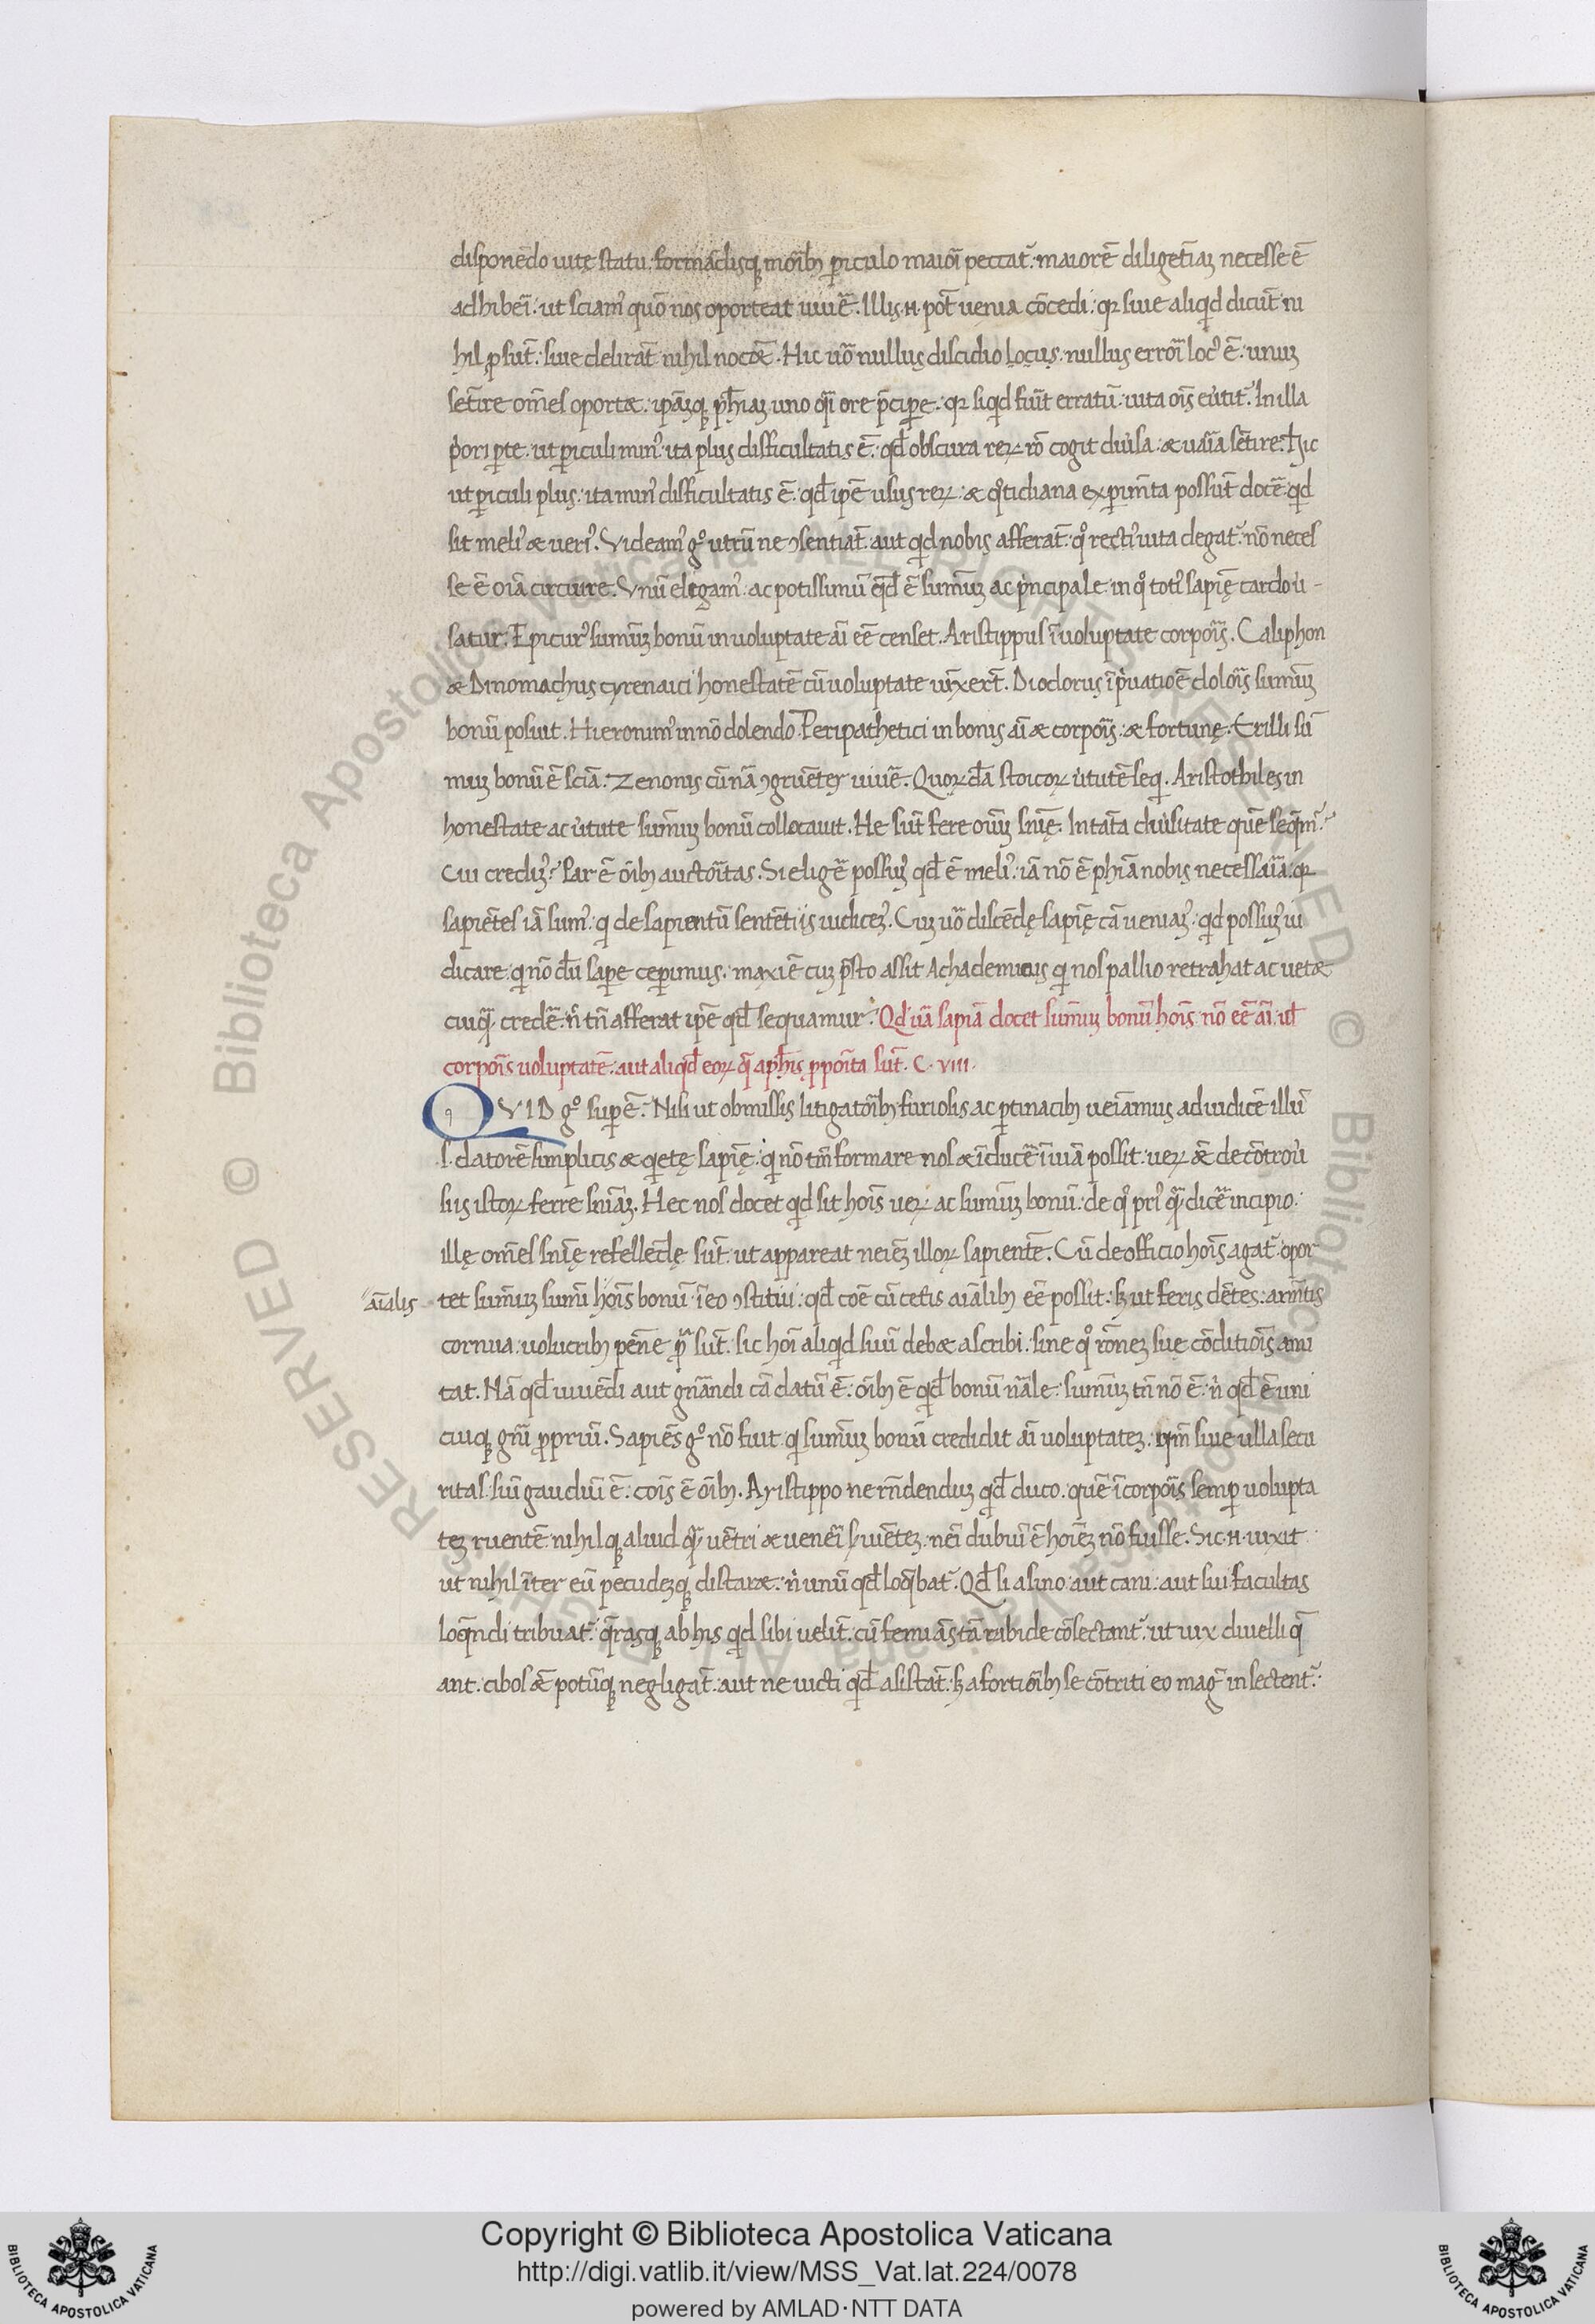 disponēdo uitę statu. formādisq moribꝫ ꝑiculo maiori peccat᷑. maiorē diligētiaꝫ necesse ē
adhiberi. ut sciam᷒ quō nos oporteat uiuē. Illis .n. pōt uenia cōcedi. qꝛ siue aliqd dicūt ni
hil ꝓsūt. siue delirāt nihil nocēt. Hic uō nullus discidio locus. nullus errori loc᷒ ē. unuꝫ
sētire omēs oportet. ipāꝫq ph̄iaꝫ uno qͣi ore p̄cipe. qꝛ siqd fuīt erratū. uita oīs eutit᷑. In illa
pori ꝑte. ut ꝑiculi min᷒. ita plus difficultatis ē. qđ obscura reꝝ rō cogit diu̓sa. & uaria sētire. Hic
ut ꝑiculi plus. ita min᷒ difficultatis ē. qđ ipē usus reꝝ. & qͦtidiana exꝑimēta possūt docē. qd
sit meli᷒ & ueri᷒. Videam᷒ gͦ utrū ne ꝯsentiāt. aut qid nobis afferāt. qͦ recti᷒ uita degat᷑. nō neces
se ē oīa circuire. Vnū eligam᷒. ac potissimū qđ ē sum̄uꝫ ac pͥncipale. in qͦ tot᷒ sapīę cardo u̓-
satur. Epicur᷒ sum̄uꝫ bonū in uoluptate ai eē censet. Aristippus ī uoluptate corporis. Caliphon
& Dinomachus cyrenaici honestatē cū uoluptate iūxert̄. Diodorus ī pͥuatioē doloris sum̄uꝫ
bonū posuit. Hieronim᷒ in nō dolendo. Peripathetici in bonis ai & corporis. & fortunę. Erilli sū
muꝫ bonū ē scīa. Zenonis cū nā ꝯgruēter uiuē. Quorꝝ dā stoicoꝝ u̓tutē seqi. Aristothiles in
honestate ac u̓tute sum̄uꝫ bonū collocauit. He sūt fere oīuꝫ snīę. In tāta diu̓sitate quē seqm᷑?
Cui credim᷒? Par ē oībꝫ auctoritas. Si eligē possum᷒ qđ ē meli᷒. iā nō ē ph̄ia nobis necessaria. qꝛ
sapiētes iā sum᷒. qi de sapientū sentētiis iudicem᷒. Cuꝫ uō discēdę sapīę cā ueniam᷒. qd possum᷒ iu
dicare. qi nō dū saꝑe ceꝑimus. maxiē cuꝫ p̄sto assit Achademicus qi nos pallio retrahat ac uetet
cuiqͣ credē. n̄ tn̄ afferat ipē qđ sequamur. Qd' uā sapīa docet sum̄uꝫ bonū hoīs nō eē ai uł
corporis uoluptatē. aut aliqđ eoꝝ q̄ a ph̄is ꝓpoita sūt. C. VIII.
QVID gͦ suꝑē. Nisi ut obmissis litigatoribꝫ furiosis ac ꝑtinacibꝫ ueiamus ad iudicē illū
.s. datorē simplicis & qietę sapīę. qi nō tm̄ formare nos & īducē ī uiā possit. ueꝝ & de cōtrou̓
siis istoꝝ ferre snīaꝫ. Hec nos docet qd sit hoīs ueꝝ ac sum̄uꝫ bonū. de qͦ pri᷒ qͣ dicē incipio.
illę omēs snīę refellēdę sūt. ut appareat neīeꝫ illoꝝ sapientē. Cū de officio hoīs agat᷑. opor
aīalis tet sum̄uꝫ sumī hoīs bonū ī eo ꝯstitui. qđ coē cū cetis aīalibꝫ eē possit. sꝫ ut feris dētes. armtis
cornua. uolucribꝫ penne ꝓͣ sūt. sic hoi aliqid suū debet ascribi. sine qͦ rōneꝫ sue cōditiois ami
tat. Nā qđ uiuēdi aut gnāndi cā datū ē. oībꝫ ē qidē bonū nāle. sum̄uꝫ tn̄ nō ē. n̄ qđ ē uni
cuiq gnī ꝓpriū. Sapiēs gͦ nō fuit qi sum̄uꝫ bonū credidit ai uoluptateꝫ. qm̄ siue illa secu
ritas. siū gaudiū ē. cois ē oībꝫ. Aristippo ne rn̄denduꝫ qidē duco. quē ī corporis semꝑ uolupta
teꝫ ruentē. nihilq aliud qͣ uētri & ueneri suiētez. neī dubiū ē hoīeꝫ nō fuisse. Sic .n. uixit
ut nihil īter eū pecudeꝫq distaret. n̄ unū qđ loqbat᷑. Qđ si asino. aut cani. aut sui facultas
loqndi tribuat᷑. qrasq ab his qd sibi uelīt. cū feminas tā rabide cōsectant᷑. ut uix diuelli q̄
ant. cibos & potūq negligāt. aut ne uicti qidē asistāt. sꝫ a fortioribꝫ se cōtriti eo magͥ insectent᷑.
Copyright © Biblioteca Apostolica Vaticana
http://digi.vatlib.it/view/MSS_Vat.lat.224/0078
powered by AMLAD·NTT DATA